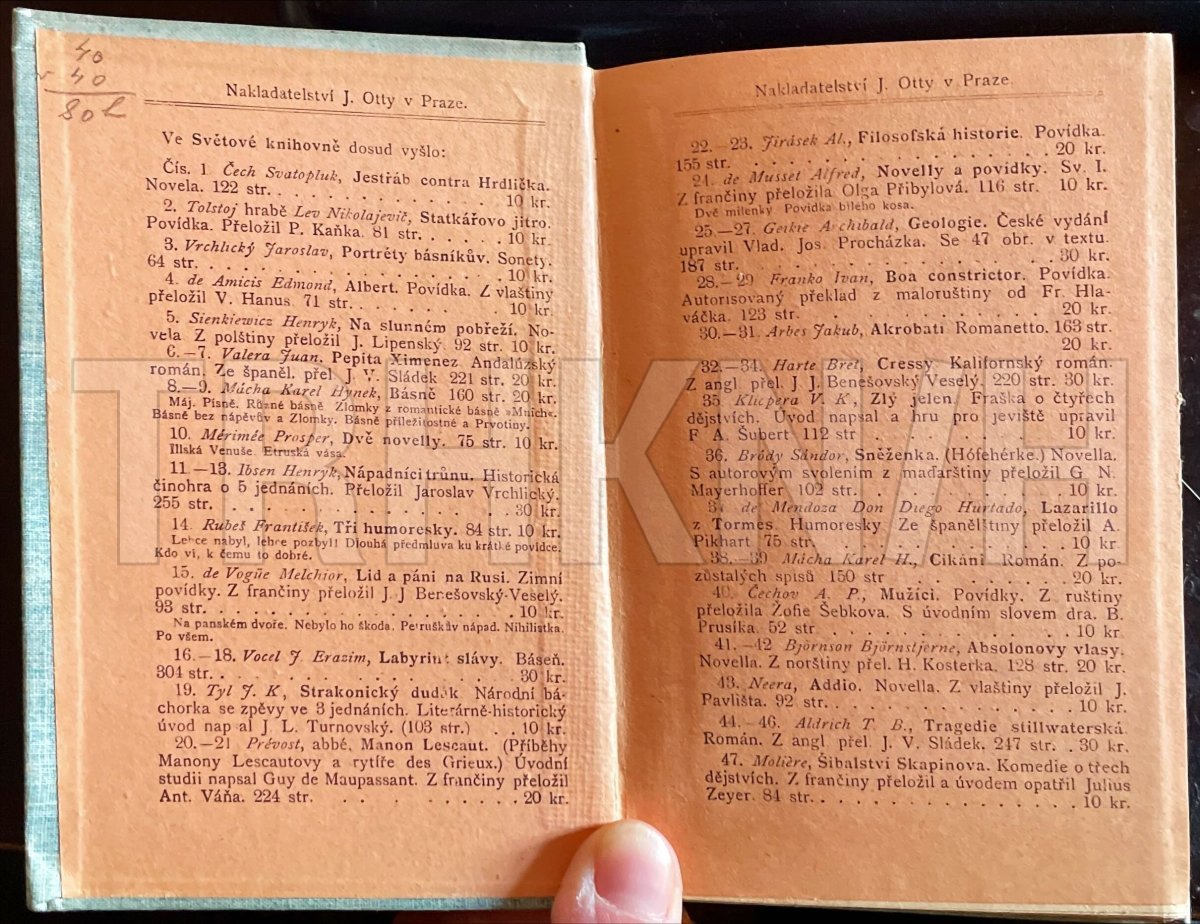 40
40
80h
Nakladatelství J. Otty v Praze.
Ve Světové knihovně dosud vyšlo:
Čís. 1 Čech Svatopluk, Jestřáb contra Hrdlička.
Novela. 122 str. . . . . . . . . . . . . . 10 kr.
2. Tolstoj hrabě Lev Nikolajevič, Statkářovo jitro.
Povídka. Přeložil P. Kaňka. 81 str. . . . . . . 10 kr.
3. Vrchlický Jaroslav, Portréty básníkův. Sonety.
64 str. . . . . . . . . . . . . . . . . 10 kr.
4. de Amicis Edmond, Albert. Povídka. Z vlaštiny
přeložil V. Hanus. 71 str. . . . . . . . . . 10 kr.
5. Sienkiewicz Henryk, Na slunném pobřeží. No-
vela Z polštiny přeložil J. Lipenský. 92 str. 10 kr.
6.—7. Valera Juan, Pepita Ximenez Andalúzský
román. Ze španěl. přel J. V. Sládek 221 str. 20 kr.
8.—9. Mácha Karel Hynek, Básně 160 str. 20 kr.
Máj. Písně. Různé básně. Zlomky z romantické básně »Mnich«.
Básně bez nápěvův a Zlomky. Básně příležitostné a Prvotiny.
10. Mérimée Prosper, Dvě novelly. 75 str. 10 kr.
Illská Venuše. Etruská vása.
11.—13. Ibsen Henryk, Nápadníci trůnu. Historická
činohra o 5 jednáních. Přeložil Jaroslav Vrchlický.
255 str. . . . . . . . . . . . . . . . . 30 kr.
14. Rubeš František, Tři humoresky. 84 str. 10 kr.
Lehce nabyl, lehce pozbyl! Dlouhá předmluva ku krátké povídce.
Kdo ví, k čemu to dobré.
15. de Vogüe Melchior, Lid a páni na Rusi. Zimní
povídky. Z frančiny přeložil J. J Benešovský-Veselý.
93 str. . . . . . . . . . . . . . . . . 10 kr.
Na panském dvoře. Nebylo ho škoda. Petruškův nápad. Nihilistka.
Po všem.
16.—18. Vocel J. Erazim, Labyrint slávy. Báseň.
304 str. . . . . . . . . . . . . . . . . 30 kr.
19. Tyl J. K, Strakonický dudák Národní bá-
chorka se zpěvy ve 3 jednáních. Literárně-historický
úvod napsal J. L. Turnovský. (103 str.) . . 10 kr.
20.—21 Prévost, abbé, Manon Lescaut. (Příběhy
Manony Lescautovy a rytíře des Grieux.) Úvodní
studii napsal Guy de Maupassant. Z frančiny přeložil
Ant. Váňa. 224 str. . . . . . . . . . . . 20 kr.
Nakladatelství J. Otty v Praze.
22.—23. Jirásek Al., Filosofská historie. Povídka.
155 str. . . . . . . . . . . . . . . . . 20 kr.
24. de Musset Alfred, Novelly a povídky. Sv. I.
Z frančiny přeložila Olga Přibylová. 116 str. 10 kr.
Dvě milenky Povídka bílého kosa.
25.—27. Geikie Archibald, Geologie. České vydání
upravil Vlad. Jos. Procházka. Se 47 obr. v textu.
187 str. . . . . . . . . . . . . . . . . 30 kr.
28.—29 Franko Ivan, Boa constrictor. Povídka.
Autorisovaný překlad z maloruštiny od Fr. Hla-
váčka. 123 str. . . . . . . . . . . . . . 20 kr.
30.—31. Arbes Jakub, Akrobati Romanetto. 163 str.
20 kr.
32.—34. Harte Bret, Cressy Kalifornský román.
Z angl přel. J. J. Benešovský Veselý. 220 str. 30 kr.
35. Klicpera V. K, Zlý jelen. Fraška o čtyřech
dějstvích. Úvod napsal a hru pro jeviště upravil
F A. Šubert 112 str . . . . . . . . . . . 10 kr.
36. Bródy Sándor, Sněženka. (Hófehérke.) Novella.
S autorovým svolením z maďarštiny přeložil G N.
Mayerhoffer 102 str. . . . . . . . . . . . 10 kr.
37 de Mendoza Don Diego Hurtado, Lazarillo
z Tormes Humoresky Ze španělštiny přeložil A.
Pikhart 75 str. . . . . . . . . . . . . . 10 kr.
38.—39 Mácha Karel H., Cikáni Román. Z po-
zůstalých spisů 150 str . . . . . . . . . . 20 kr.
40. Čechov A. P, Mužíci. Povídky. Z ruštiny
přeložila Žofie Šebkova. S úvodním slovem dra. B.
Prusíka. 52 str . . . . . . . . . . . . . 10 kr
41.—42 Björnson Björnstjerne, Absolonovy vlasy.
Novella. Z norštiny přel. H. Kosterka. 128 str. 20 kr.
43. Neera, Addio. Novella. Z vlaštiny přeložil J.
Pavlišta. 92 str. . . . . . . . . . . . . 10 kr.
44.—46. Aldrich T B., Tragedie stillwaterská
Román. Z angl přel. J. V. Sládek. 247 str. . 30 kr.
47. Molière, Šibalství Skapinova. Komedie o třech
dějstvích. Z frančiny přeložil a úvodem opatřil Julius
Zeyer. 84 str. . . . . . . . . . . . . . 10 kr.